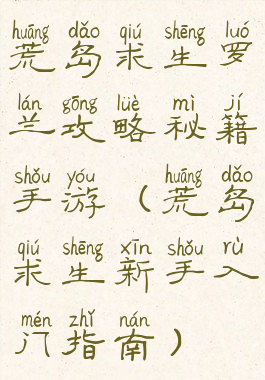 huāng dǎo qiú shēng luó
荒岛求生罗
lán gōng lüè mì jí
兰攻略秘籍
shǒu yóu huāng dǎo
手游(荒岛
qiú shēng xīn shǒu rù
求生新手入
mén zhǐ nán
门指南)